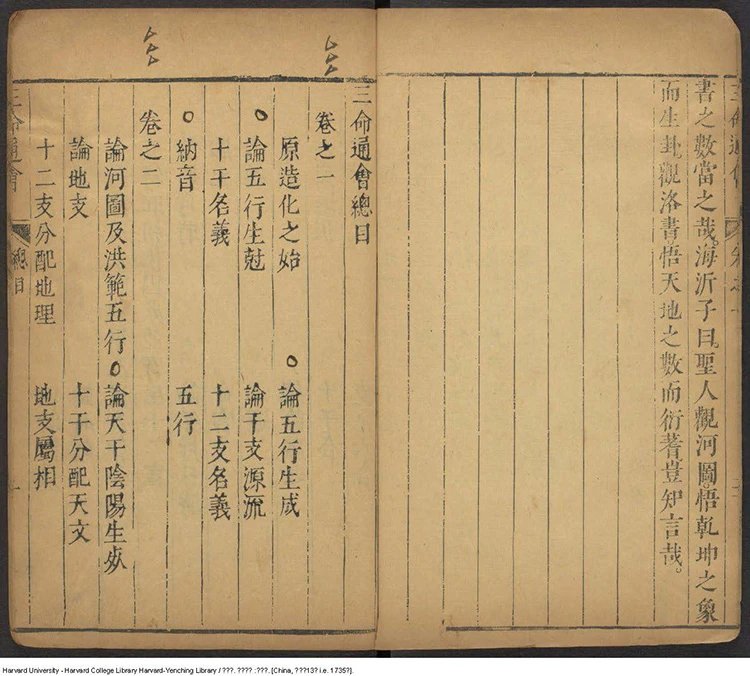 書之數當之哉。海沂子曰聖人觀河圖悟乾坤之象
而生卦觀洛書悟天地之數而衍蓍豈知言哉。
三命通會總目
卷之一
原造化之始 ○論五行生成
○論五行生尅 論干支源流
十干名義 十二支名義
○納音 五行
卷之二
論河圖及洪範五行 ○論天干陰陽生死
論地支 十干分配天文
十二支分配地理 地支屬相
三命通會 總目 一
Harvard University - Harvard College Library Harvard-Yenching Library / ???. ???? :???. [China, ???13? i.e. 1735?].